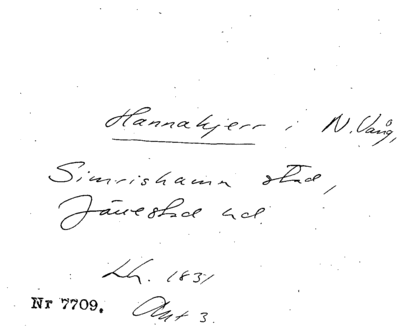 Hannakjerr i N. Vång,
Simrishamn stad,
Järrestad hd.
Lh. 1831
Nr 7709. Akt 3.